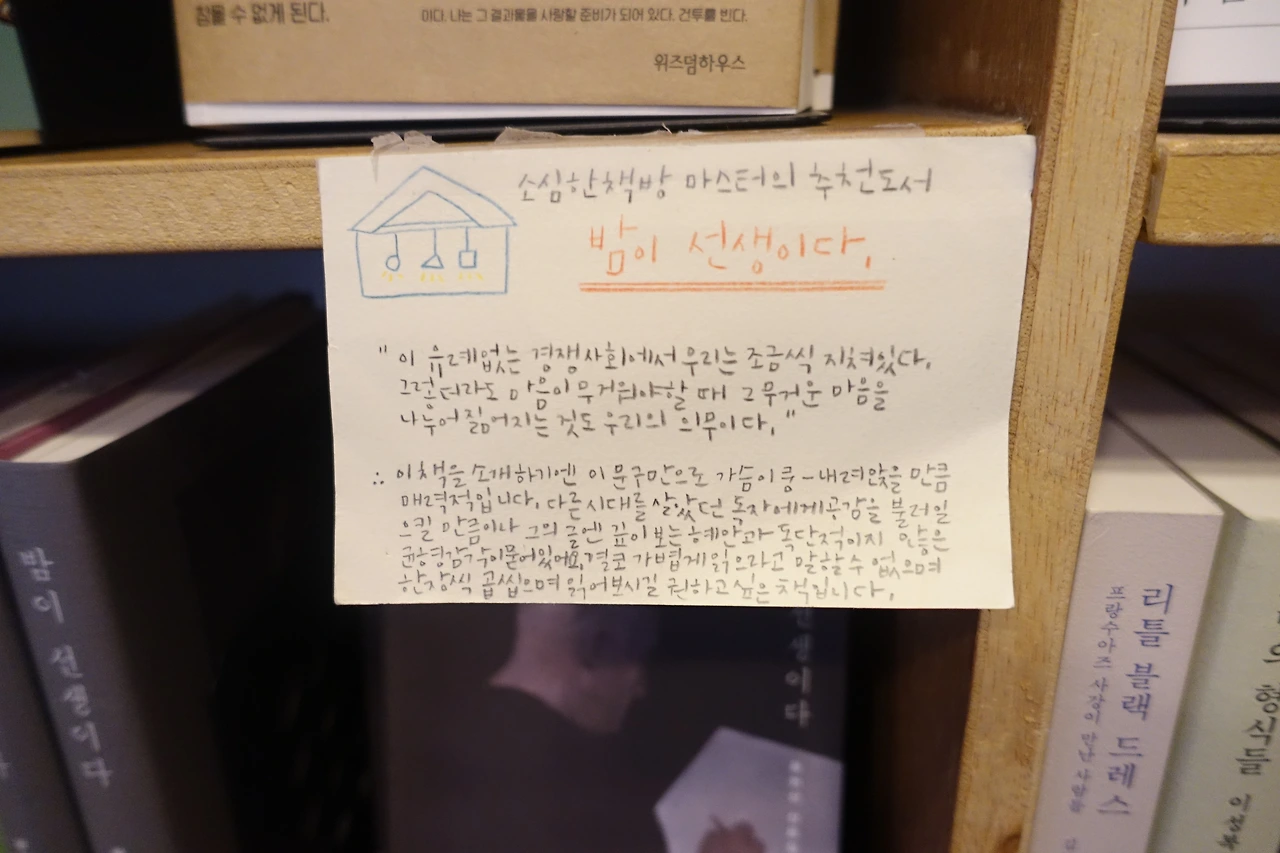 참을 수 없게 된다.
이다. 나는 그 결과물을 사랑할 준비가 되어 있다. 건투를 빈다.
위즈덤하우스
소심한책방 마스터의 추천도서
밤이 선생이다,
" 이 유례없는 경쟁사회에서 우리는 조금씩 지쳐있다.
그렇더라도 마음이 무거워야할 때 그 무거운 마음을
나누어 짊어지는 것도 우리의 의무이다, "
∴ 이 책을 소개하기엔 이 문구만으로 가슴이 쿵-내려앉을 만큼
매력적입니다. 다른 시대를 살았던 독자에게 공감을 불러일
으킬 만큼이나 그의 글엔 깊이 보는 혜안과 독단적이지 않음은
균형감각이 묻어있어요, 결코 가볍게 읽으라고 말할 수 없으며
한장씩 곱씹으며 읽어보시길 권하고 싶은 책입니다.
밤이 선생이다
선생이다
리틀 블랙 드레스
프랑수아즈 사강이 만난 사람들
형식들